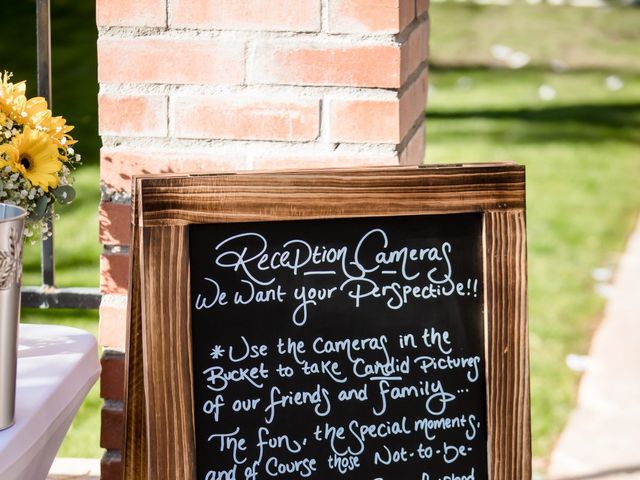 Reception Cameras
We Want your Perspective!!
* Use the Cameras in the
Bucket to take Candid Pictures
of our friends and family...
The fun, the special moments,
and of Course those Not-to-be-